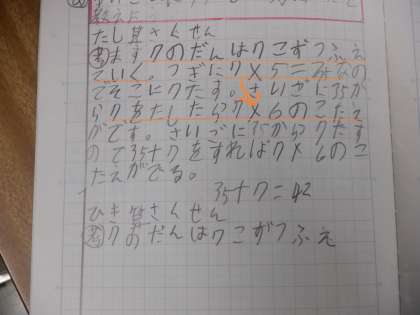 教えに
たし算さくせん
考 まず7のだんは7こずつふえ
ていく。つぎに7×5=35なの
でそこに7たす。さいごに35か
ら7をたしたら7×6のこたえ
がです。さいごに35から7たす
ので35+7をすれば7×6のこ
たえがでる。
35+7=42
ひき算さくせん
考 7のだんは7こずつふえ